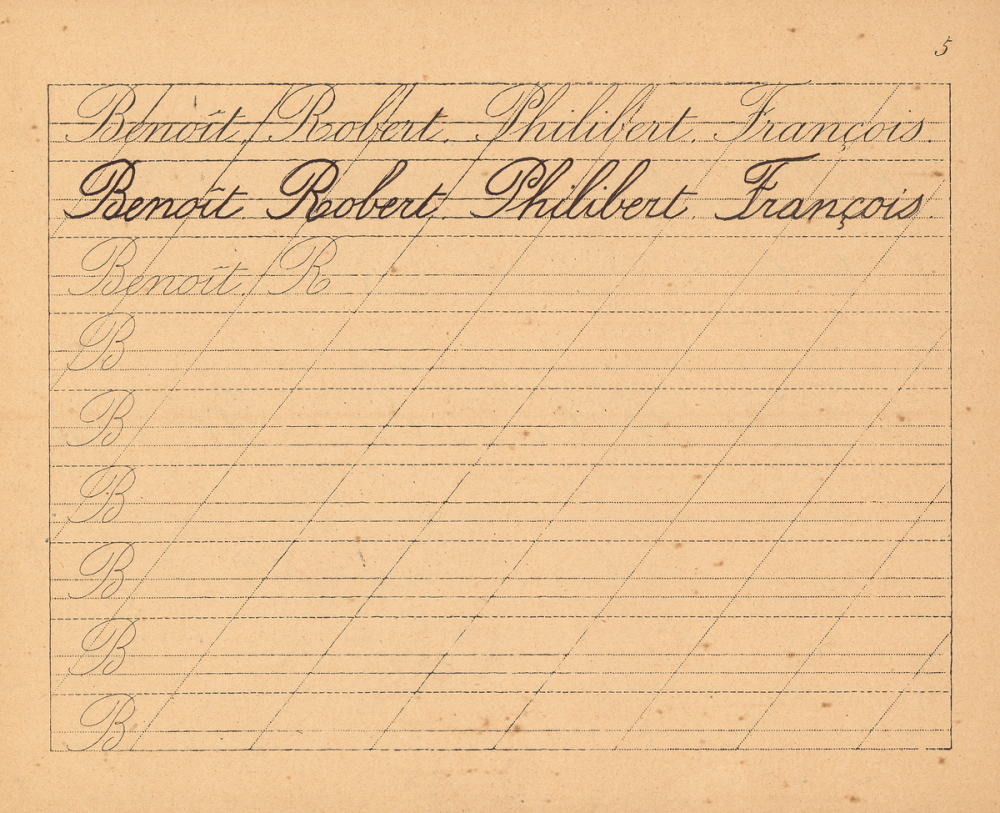 5
Benoît. Robert. Philibert. François.
Benoît Robert Philibert François
Benoît. R
B
B
B
B
B
B